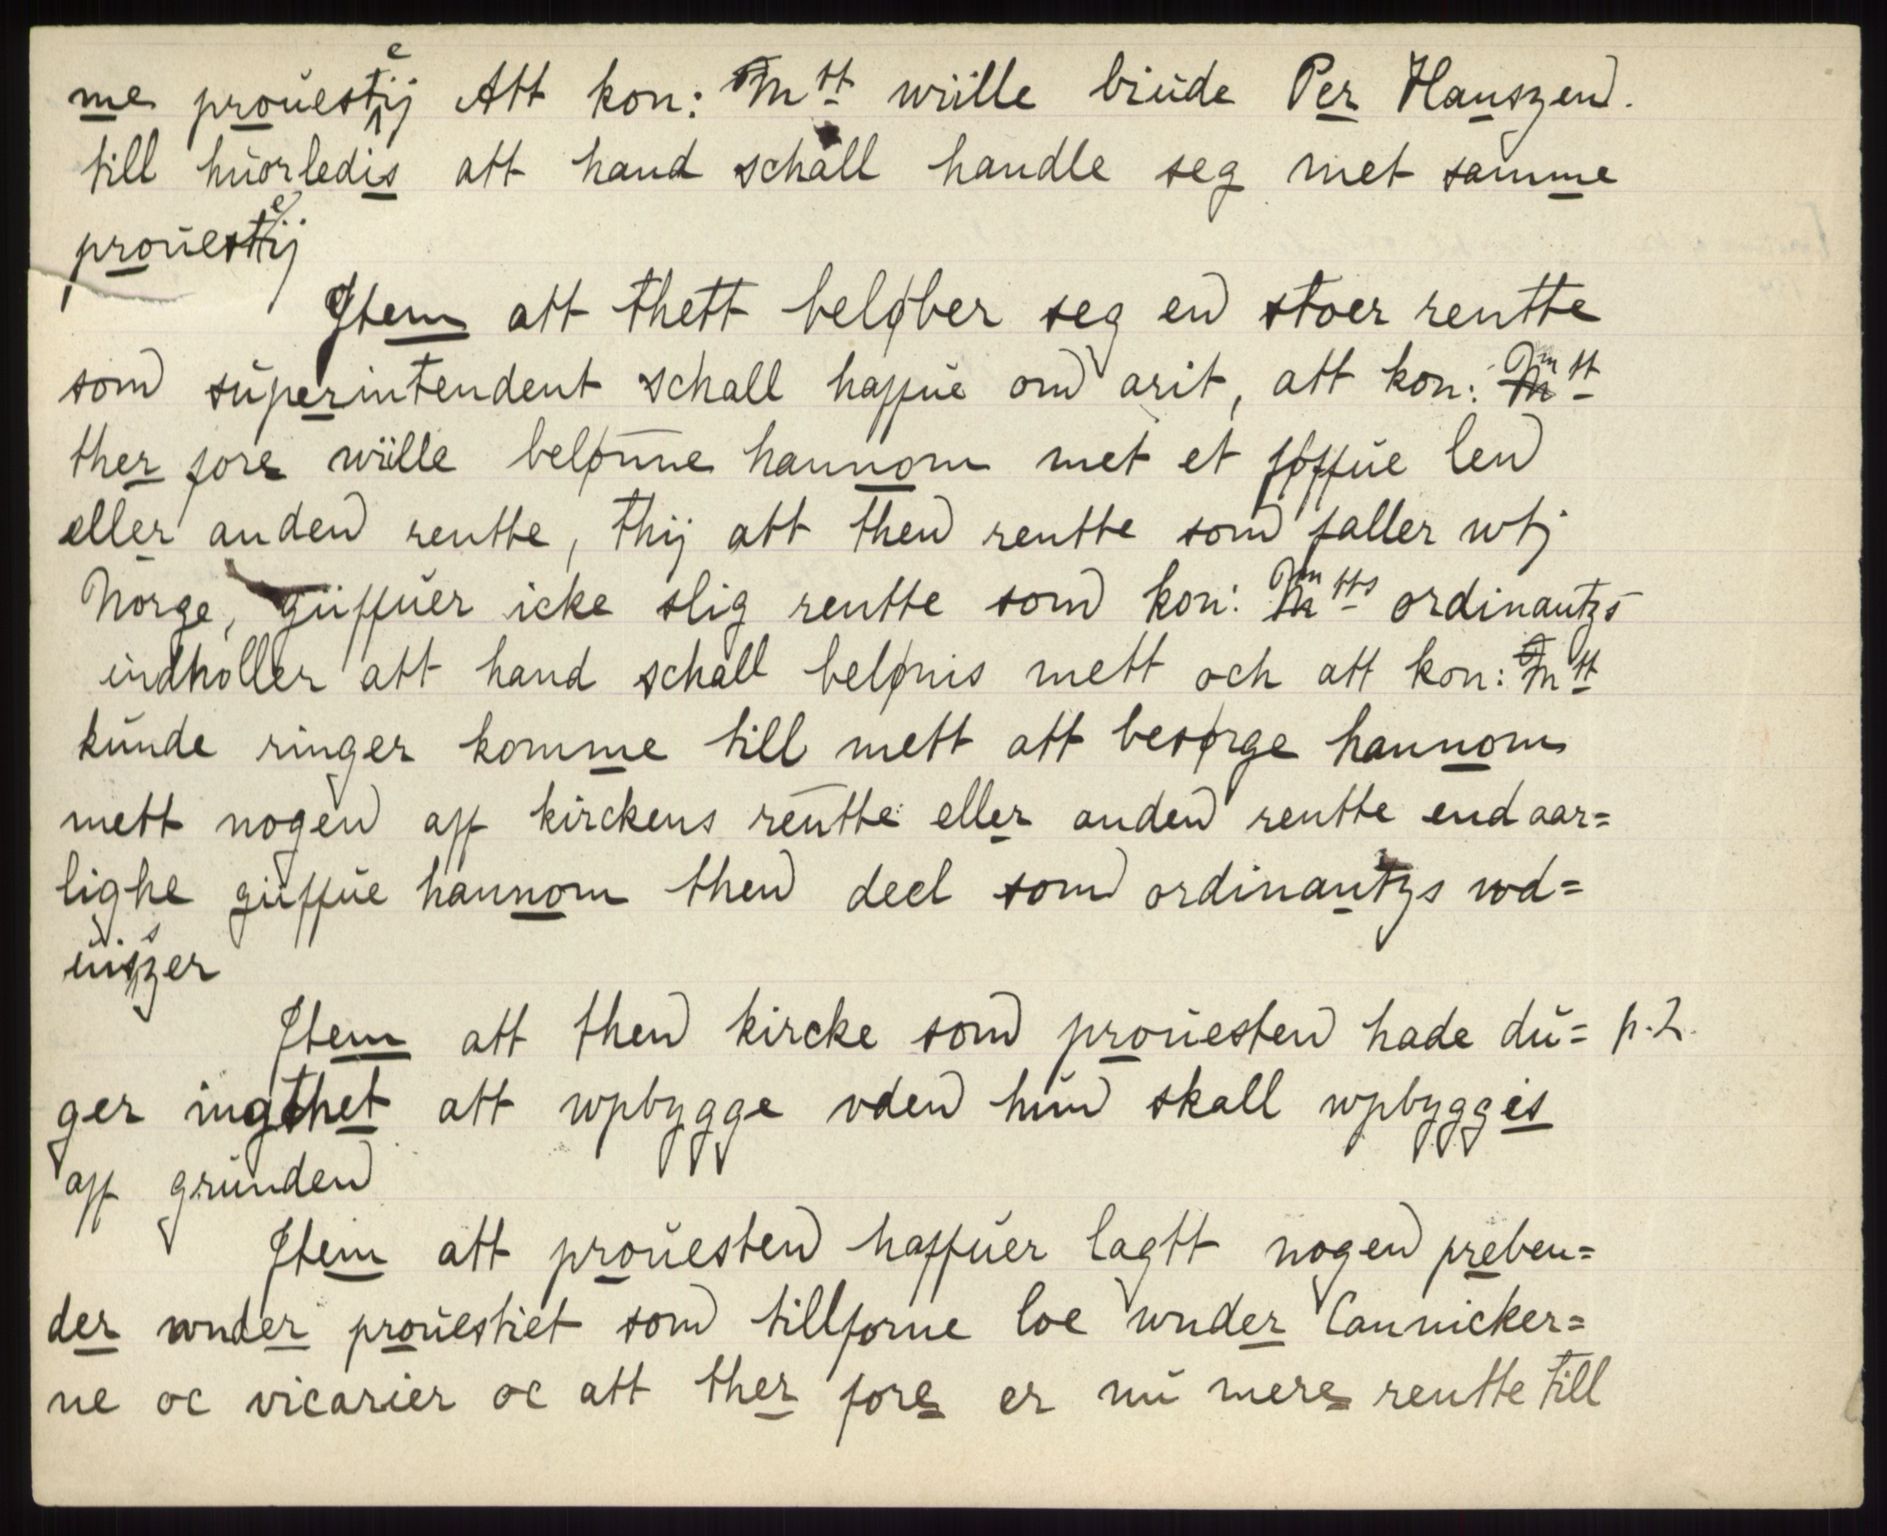 me prouesteij Att kon: Mtt wiille biude Per Hanszen.
till huorledis att hand schall handle seg met samme
prouesteij
Item att thett beløber seg en stoer rentte
som superintendent schall haffue om arit, att kon: Mtt
ther fore wiille belønne hannom met et søffue len
eller anden rentte, thij att then rentte som faller wtj
Norge, giiffuer icke slig rentte som kon: Mtts ordinantzs
indholler att hand schall belønis mett och att kon: Mtt
kunde ringer komme till mett att besørge hannom
mett nogen aff kirckens rentte eller anden rentte end aar=
lighe giiffue hannom then deel som ordinantzs wd=
uisszer
Item att then kircke som prouesten hade du= p. 2.
ger ingthet att wpbygge vden hun skall wpbyggis
aff grunden
Item att prouesten haffuer lagtt nogen preben=
der wnder prouestiet som tillforne loe wnder Cannicker=
ne oc vicarier oc att ther fore er nu mere rentte till